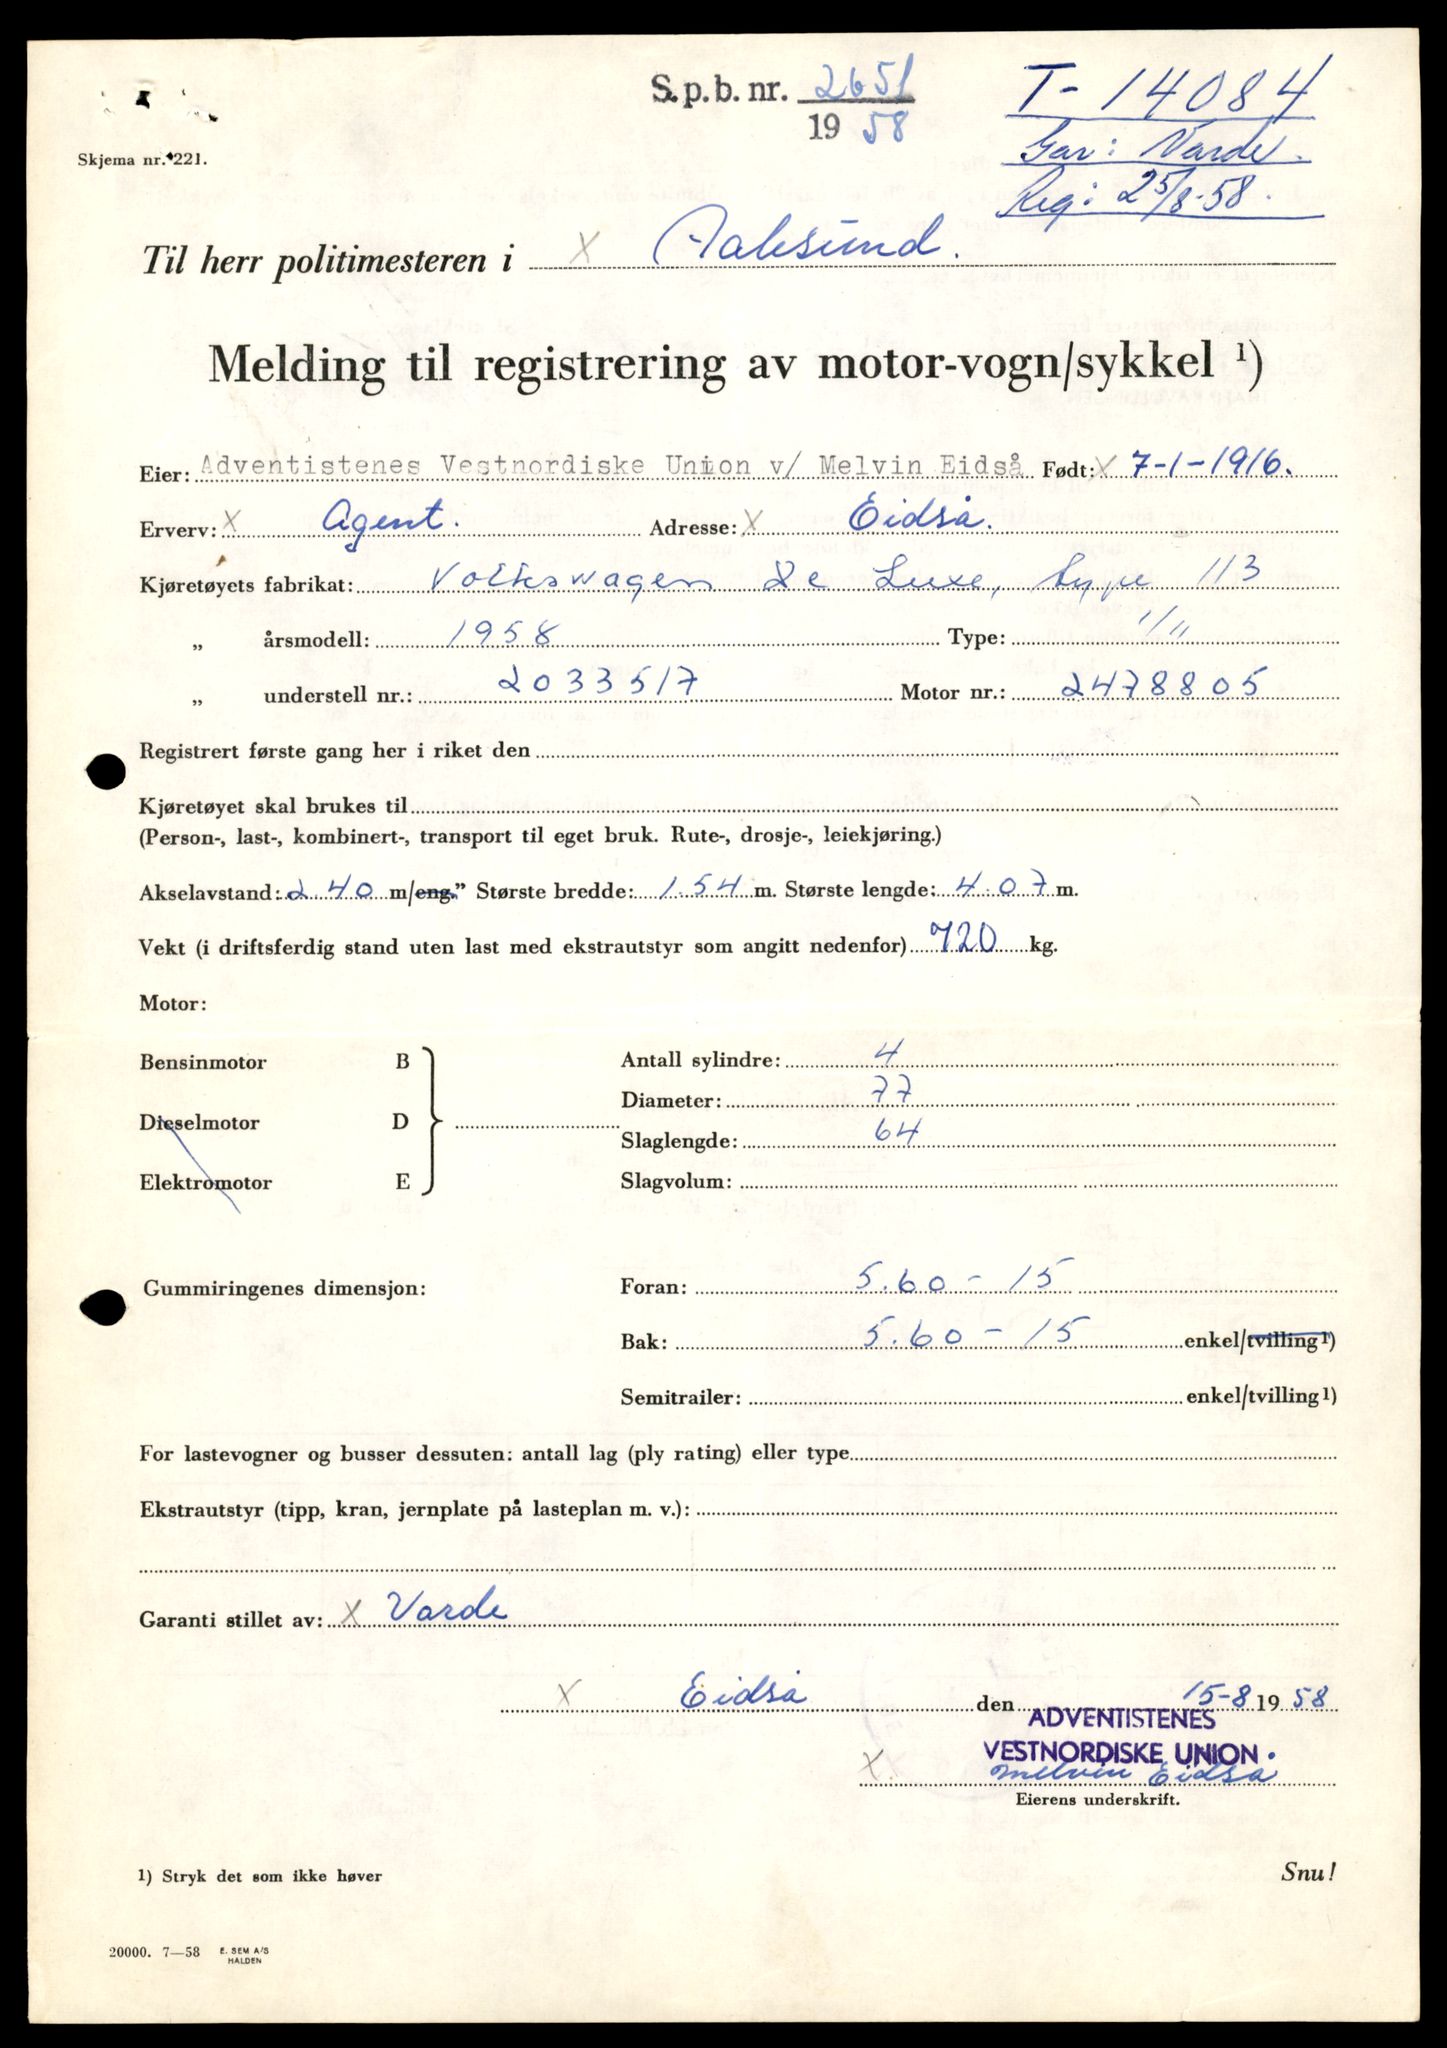 S.p.b. nr. 2651
1958
T-14084
Gar: Varde.
Reg: 25/8-58.
Skjema nr. 221.
Til herr politimesteren i X Aalesund.
Melding til registrering av motor-vogn/sykkel ¹)
Eier: Adventistenes Vestnordiske Union v/ Melvin Eidså Født: X 7-1-1916.
Erverv: X Agent. Adresse: X Eidså.
Kjøretøyets fabrikat: Volkswagen De Luxe, type 113
„ årsmodell: 1958 Type: "/"
„ understell nr.: 2033517 Motor nr.: 2478805
Registrert første gang her i riket den
Kjøretøyet skal brukes til
(Person-, last-, kombinert-, transport til eget bruk. Rute-, drosje-, leiekjøring.)
Akselavstand: 2.40 m/eng.” Største bredde: 1.54 m. Største lengde: 4.07 m.
Vekt (i driftsferdig stand uten last med ekstrautstyr som angitt nedenfor) 720 kg.
Motor:
Bensinmotor B Antall sylindre: 4
Diameter: 77
Dieselmotor D
Slaglengde: 64
Elektromotor E Slagvolum:
Gummiringenes dimensjon: Foran: 5.60-15
Bak: 5.60-15 enkel/tvilling¹)
Semitrailer: enkel/tvilling¹)
For lastevogner og busser dessuten: antall lag (ply rating) eller type
Ekstrautstyr (tipp, kran, jernplate på lasteplan m. v.):
Garanti stillet av: X Varde
X Eidså den 15-8 1958
ADVENTISTENES
VESTNORDISKE UNION.
X Melvin Eidså
Eierens underskrift.
1) Stryk det som ikke høver
Snu!
20000. 7—58 E. SEM A/S
HALDEN